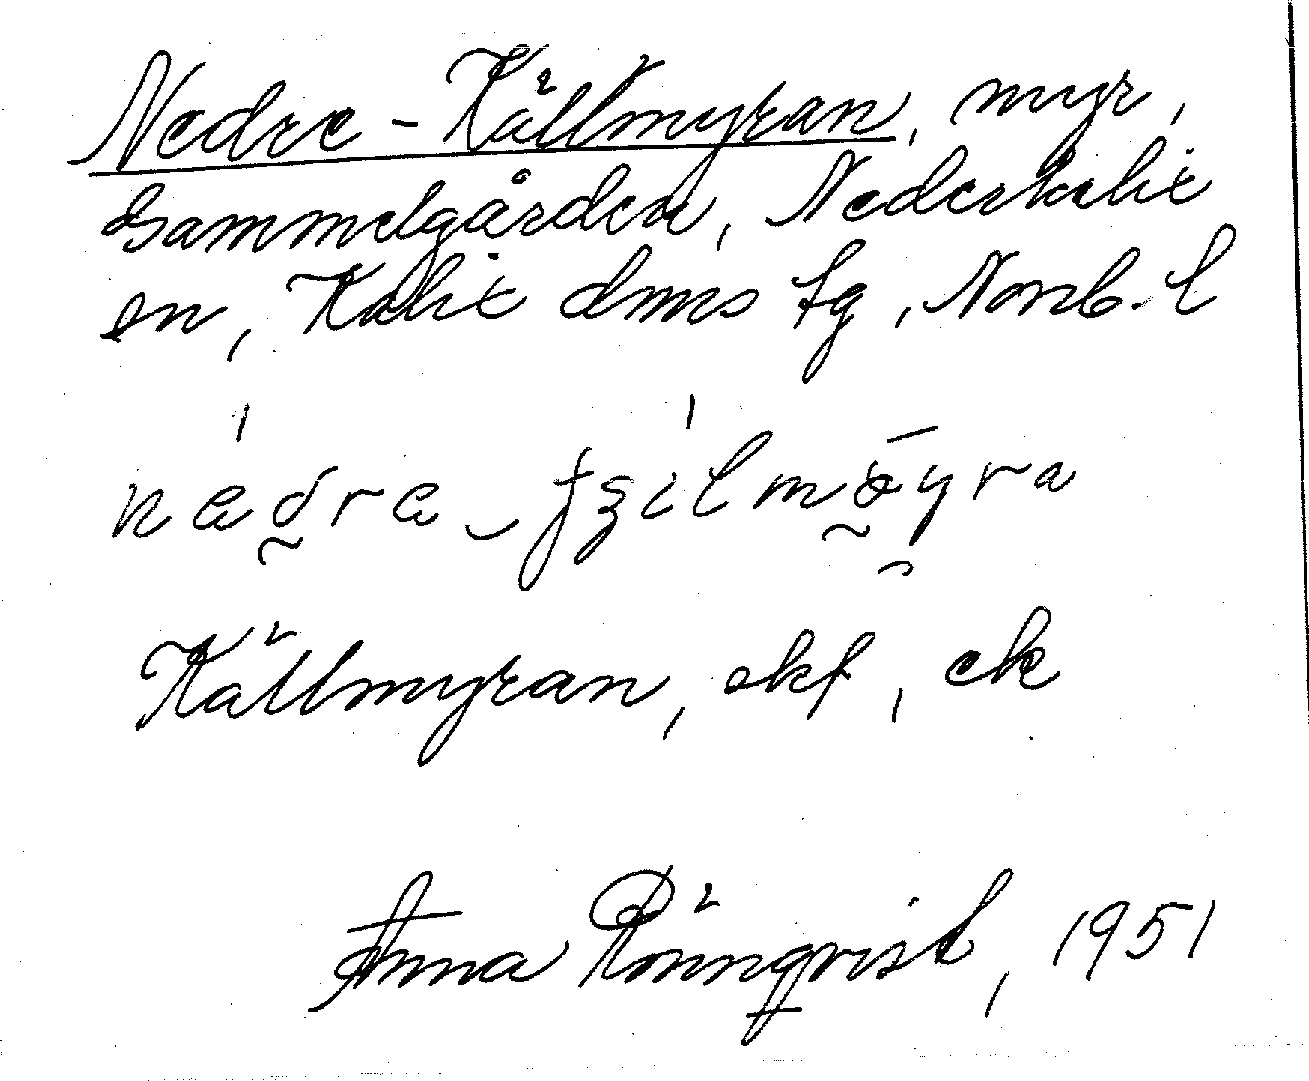 Nedre-Källmyran, myr,
Gammelgården, Nederkalix
sn, Kalix dmrs tg, Norrb. l
Källmyran, ekf, ek
Anna Rönnqvist, 1951